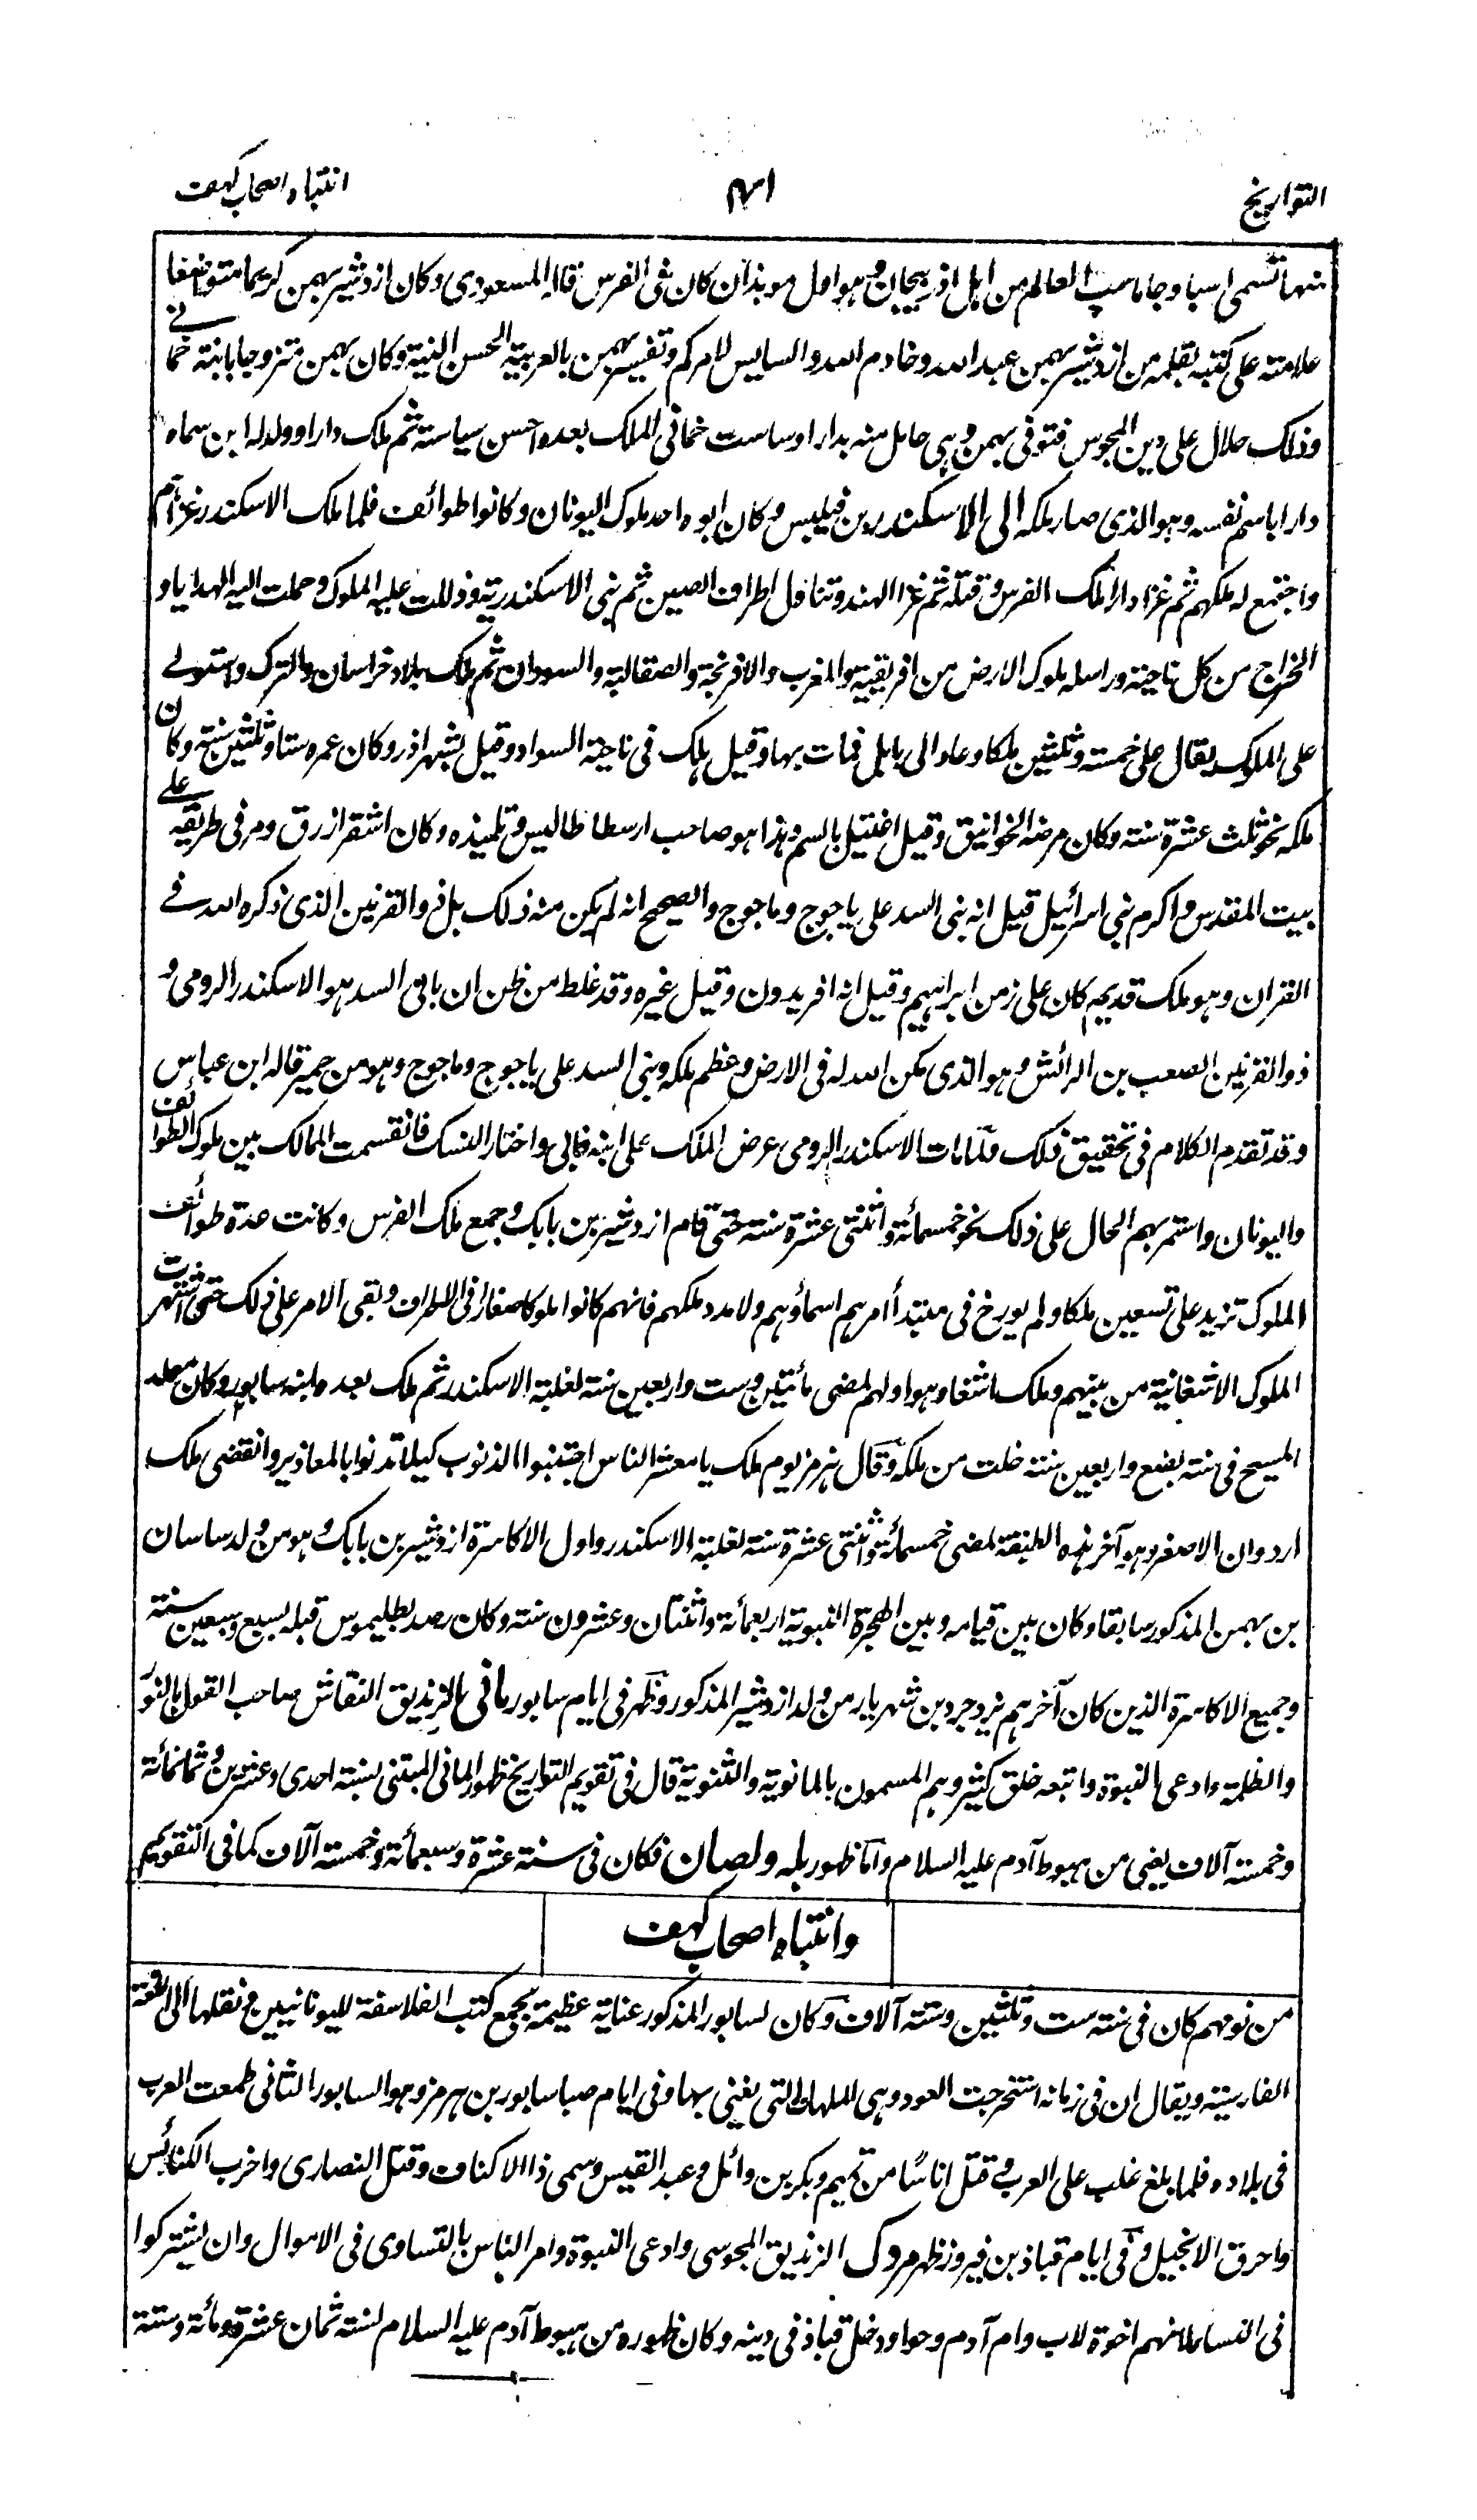 التواريخ
١٣١
انتباه اصحاب كهف
منها تسمى اسبا وجاماسب العالم من اهل اذربيجان وهو اول موبذان كان فى الفرس قاله المسعودى وكان ازدشير بهمن كريما متواضعا
علامته على كتبه بقلمه من ازدشير بهمن عبد الله وخادم الله والسايس لامركم وتفسير بهمن بالعربية الحسن النية وكان بهمن متزوجا بابنته خمانے
وذلك حلال على دين المجوس فتوفى بهمن وهى حامل منه بدارا وساست خمانى الملك بعده احسن سياسة ثم ملك دارا وولد له ابن سماه
دارا باسم نفسه وهو الذى صار ملكه الى الاسكندر بن فيلبس وكان ابوه احد ملوك اليونان وكانوا طوائف فلما ملك الاسكندر غزاهم
واجتمع له ملكهم ثم غزا دارا ملك الفرس وقتله ثم غزا الهند وتناول اطراف الصين ثم بنى الاسكندرية وذللت عليه الملوك وحملت اليه الهدايا و
الخراج من كل ناحية وراسله ملوك الارض من افريقية والمغرب والافرنجة والصقالبة والسودان ثم ملك بلاد خراسان والترك واستولے
على الملوك يقال على خمسة وثلثين ملكا وعاد الى بابل فمات بها وقيل هلك فى ناحية السواد وقيل بشهراذر وكان عمره ستا وثلثين سنة وكان
ملكه نحو ثلث عشرة سنة وكان مرضه الخوانيق وقيل اغتيل بالسم وهذا هو صاحب ارسطاطاليس وتلميذه وكان اشقر ازرق ومر فى طريقه علے
بيت المقدس واكرم بنى اسرائيل قيل انه بنى السد على ياجوج وماجوج والصحيح انه لم يكن منه ذلك بل ذو القرنين الذى ذكره الله فے
القران وهو ملك قديم كان على زمن ابراهيم وقيل انه افريدون وقيل غيره وقد غلط من ظن ان بانى السد هو الاسكندر الرومى و
ذو القرنين الصعب بن الرائش وهو الذى مكن الله له فى الارض وعظم ملكه وبنى السد على ياجوج وماجوج وهو من حمير قاله ابن عباس
وقد تقدم الكلام فى تحقيق ذلك ولما مات الاسكندر الرومى عرض الملك على ابنه فابى واختار النسك فانقسمت الممالك بين ملوك الطوائف
واليونان واستمر بهم الحال على ذلك نحو خمسمائة واثنتى عشرة سنة حتى قام ازدشير بن بابك وجمع ملك الفرس وكانت عدة طوائف
الملوك تزيد على تسعين ملكا ولم يورخ فى مبتدأ امرهم اسماؤهم ولا مدد ملكهم فانهم كانوا ملوكا صغارا فى الاطراف وبقى الامر على ذلك حتى اشتهرت
الملوك الاشغانية من بينهم وملك اشغا وهو اولهم لمضى مائتين وست واربعين سنة لغلبة الاسكندر ثم ملك بعده ابنه سابور وكان مولد
المسيح فى سنة بضع واربعين سنة خلت من ملكه وقال هرمز يوم ملك يا معشر الناس اجتنبوا الذنوب كيلا تدنوا بالمعاذير وانقضى ملك
اردوان الاصغر وهو آخر هذه الطبقة لمضى خمسمائة واثنتى عشرة سنة لغلبة الاسكندر واول الاكاسرة ازدشير بن بابك وهو من ولد ساسان
بن بهمن المذكور سابقا وكان بين قيامه وبين الهجرة النبوية اربعمائة واثنتان وعشرون سنة وكان رصد بطليموس قبله بسبع وسبعين سنة
وجميع الاكاسرة الذين كان آخرهم يزدجرد بن شهريار من ولد ازدشير المذكور وظهر فى ايام سابور مانى الزنديق النقاش صاحب القول بالنور
والظلمة وادعى النبوة واتبعه خلق كثير وهم المسمون بالمانوية والثنوية قال فى تقويم التواريخ ظهور المانى المبتنى لسنة احدى وعشرين وثمانمائة
وخمسة آلاف يعنى من هبوط آدم عليه السلام واما ظهور بله ولصان فكان فى سنة عشرة وسبعمائة وخمسة آلاف كما فى التقويم
وانتباه اصحاب كهف
من نومهم كان فى سنة ست وثلثين وستة آلاف وكان لسابور المذكور عناية عظيمة بجمع كتب الفلاسفة لليونانيين ونقلها الى اللغة
الفارسية ويقال ان فى زمانه استخرجت العود وهى الملهاة التى يغنى بها وفى ايام صبا سابور بن هرمز وهو السابور الثانى طمعت العرب
فى بلاده فلما بلغ غلب على العرب وقتل اناسًا من تميم وبكر بن وائل وعبد القيس وسمى ذا الاكتاف وقتل النصارى واخرب الكنائس
واحرق الانجيل وفى ايام قباذ بن فيروز ظهر مزدك الزنديق المجوسى وادعى النبوة وامر الناس بالتساوى فى الاموال وان يشتركوا
فى النسا لانهم اخوة لاب وام آدم وحوا ودخل قباذ فى دينه وكان ظهوره من هبوط آدم عليه السلام لسنة ثمان عشرة ومائة وستة